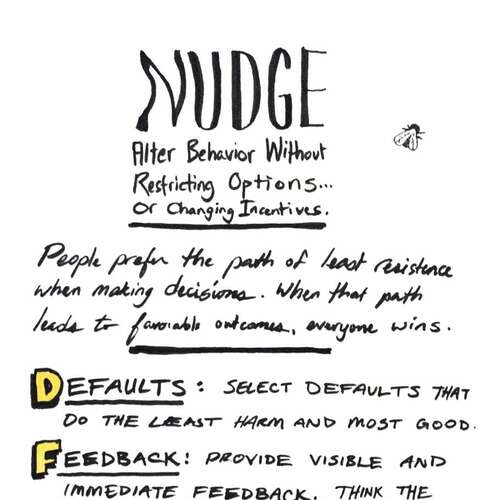 NUDGE
Alter Behavior Without
Restricting Options...
Or Changing Incentives.
People prefer the path of least resistence
when making decisions. When that path
leads to favorable outcomes, everyone wins.
DEFAULTS: SELECT DEFAULTS THAT
DO THE LEAST HARM AND MOST GOOD.
FEEDBACK: PROVIDE VISIBLE AND
IMMEDIATE FEEDBACK. THINK THE